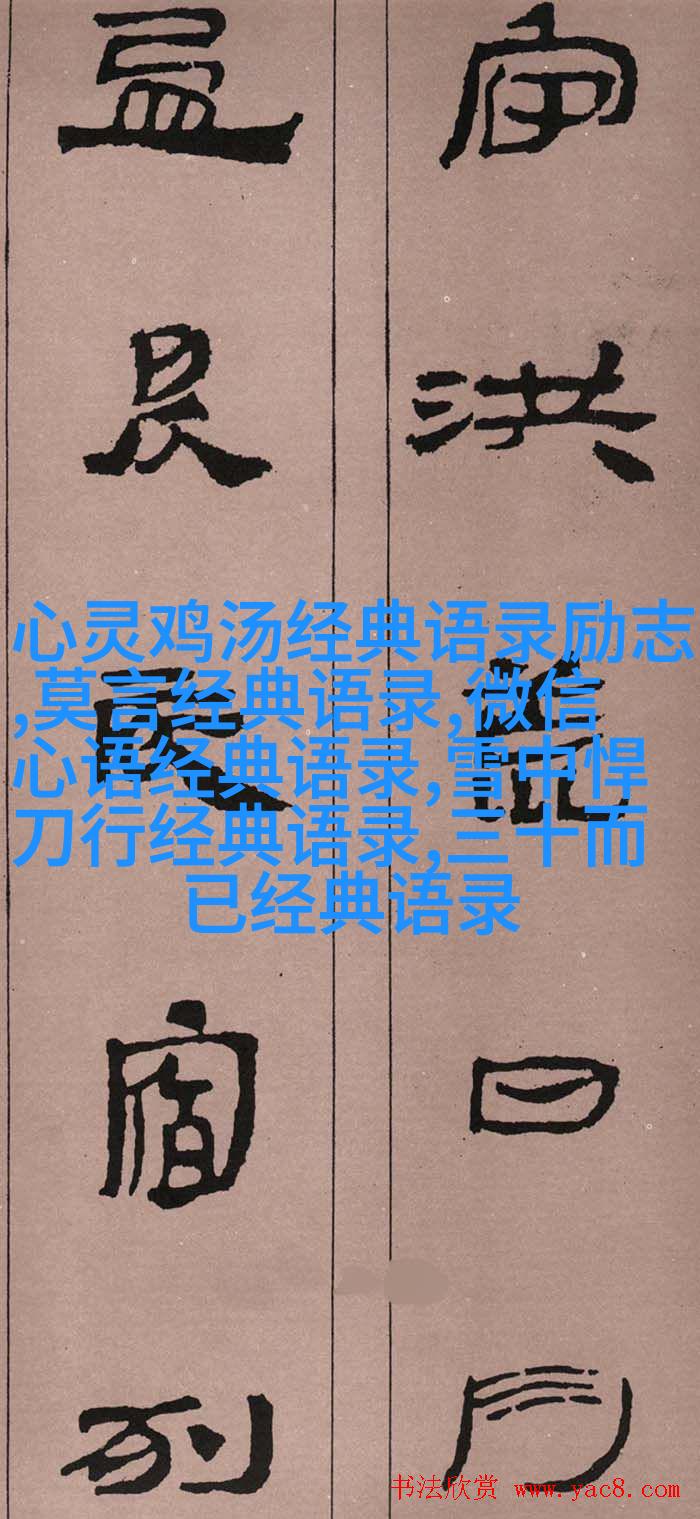 宙洪荒日月
盈昃辰宿列
心灵鸡汤经典语录励志
,莫言经典语录,微信
心语经典语录,雪中悍
刀行经典语录,三十而
已经典语录
书法欣赏 www.yac8.com